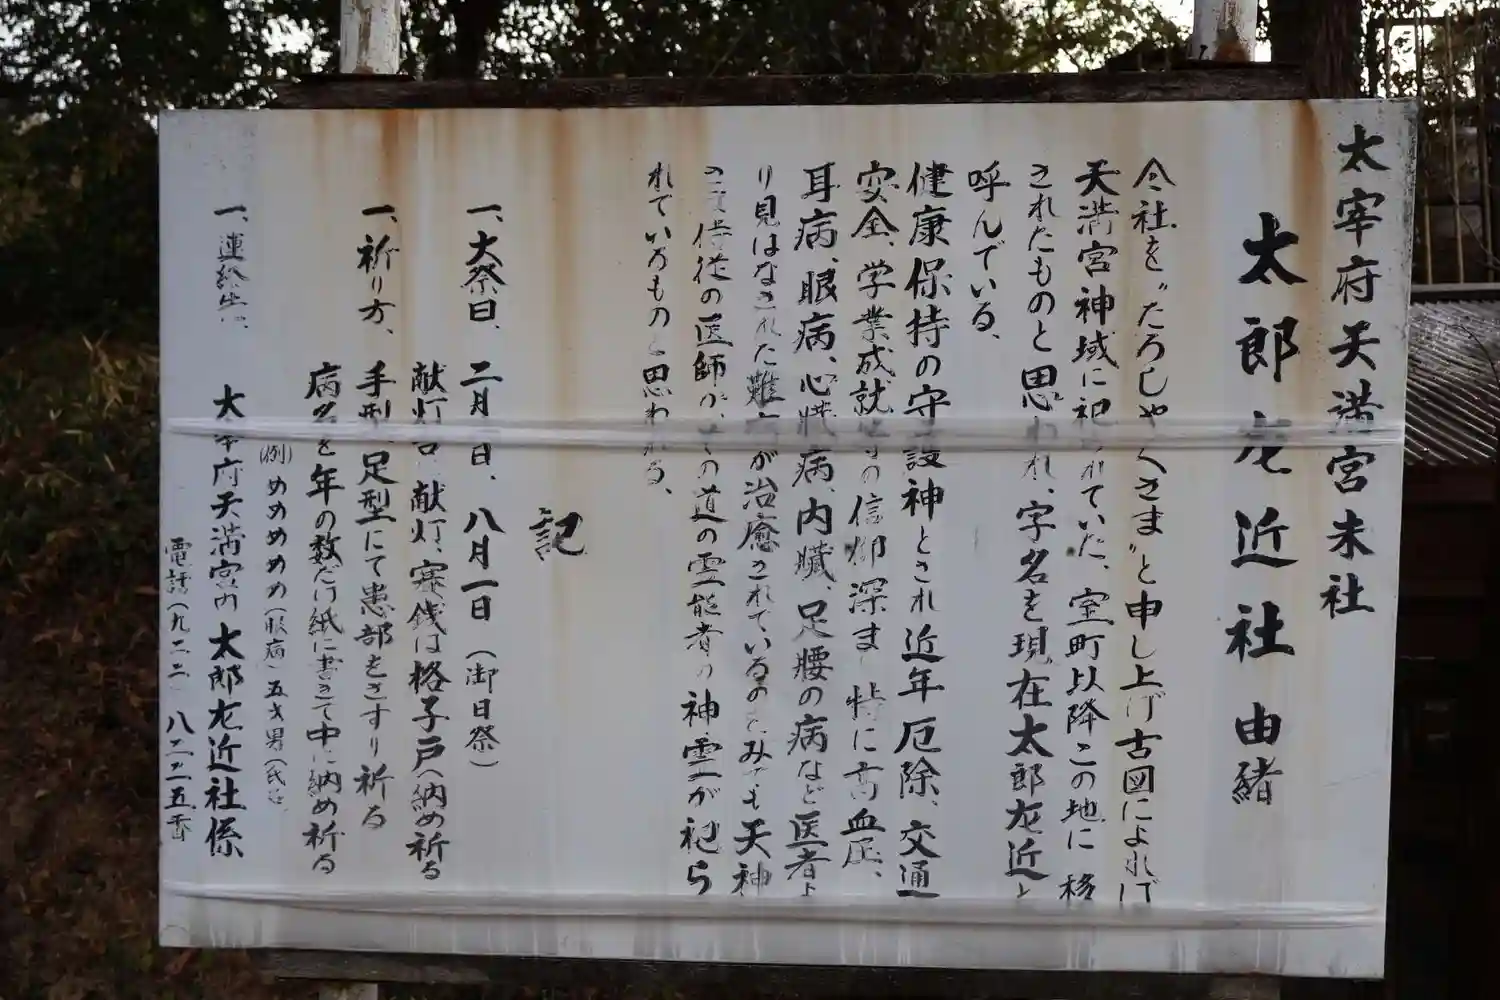 太宰府天満宮末社
太郎左近社 由緒
今社を〝たろしゃくさま〟と申し上げ古図によれば
天満宮神域に祀られていた、室町以降この地に移
されたものと思われ、字名を現在太郎左近と
呼んでいる、
健康保持の守護神とされ近年厄除、交通
安全、学業成就の信仰深ま 特に高血圧、
耳病、眼病、心臓病、内臓、足腰の病など医者よ
り見はなされた難病が治癒されているのをみても天神
侍従の医師が、その道の霊能者の神霊が祀ら
れているものと思われる、
記
一、大祭日、二月 日、八月一日（御日祭）
献灯 献灯、賽銭は格子戸へ納め祈る
一、祈り方、手型、足型にて患部をさすり祈る
病名を年の数だけ紙に書きて中に納め祈る
（例）めめめめめ（眼病）五才男（氏名
一、連絡先、
太宰府天満宮内 太郎左近社係
電話（九二二 八二二五番